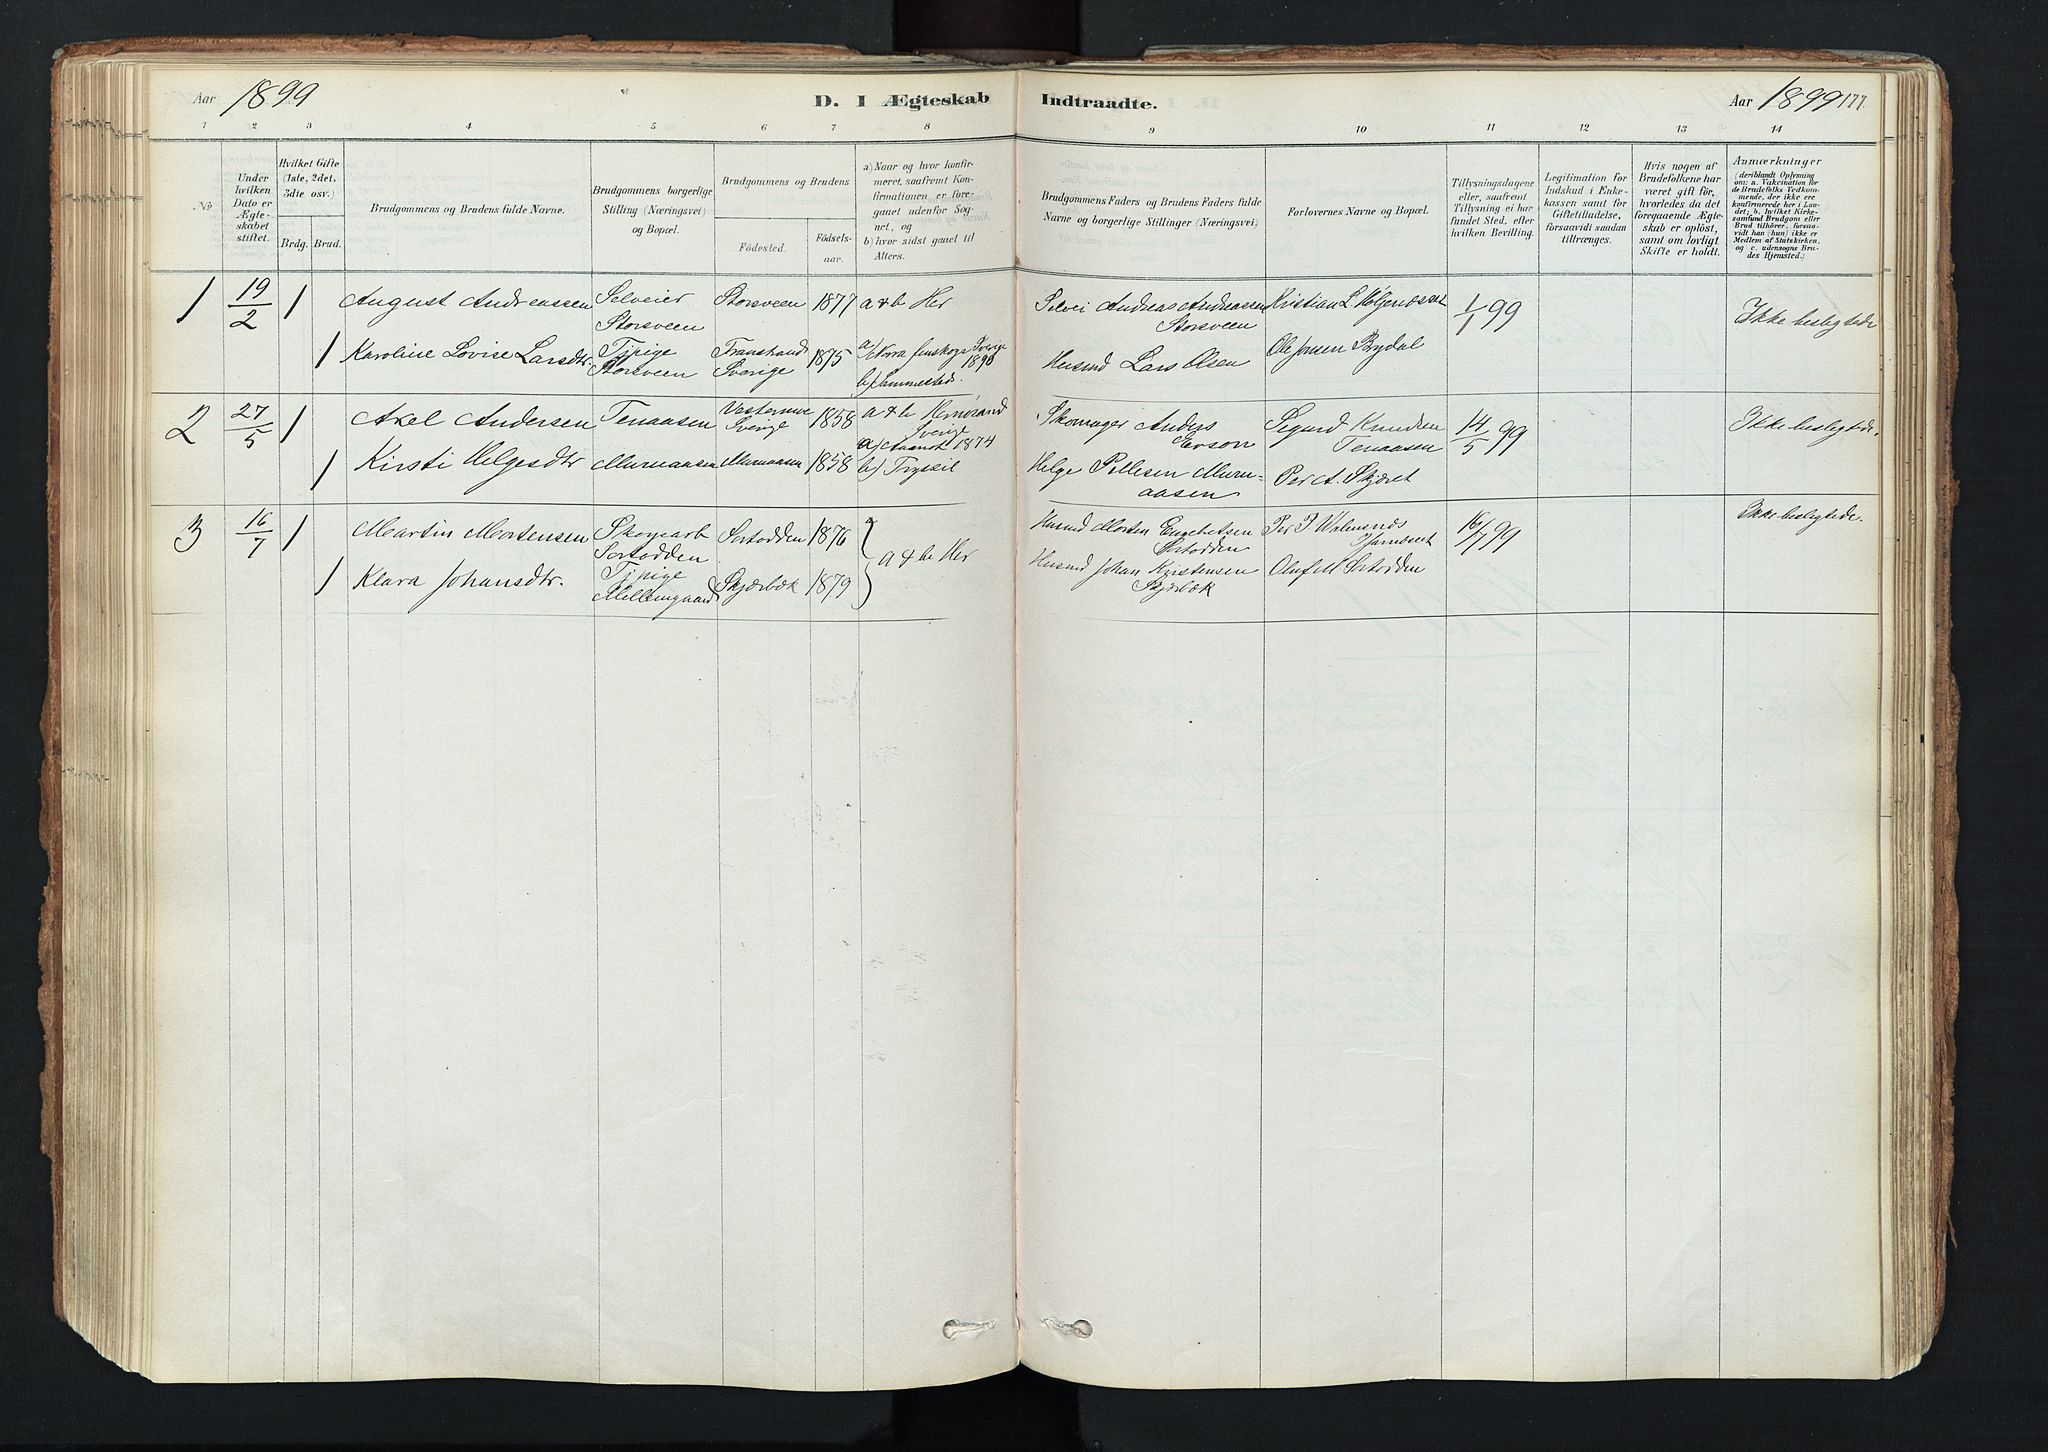 Aar 1899
D. I Ægteskab Indtraadte.
Aar 1899 177.
1 2 3 4 5 6 7 8 9 10 11 12 13 14
No
Under hvilken Dato er Ægteskabet stiftet.
Hvilket Gifte (1ste, 2det, 3die osv.)
Brdg. Brud.
Brudgommens og Brudens fulde Navne.
Brudgommens borgerlige Stilling (Næringsvei) og Bopæl.
Brudgommens og Brudens
Födested.
Födselsaar.
a) Naar og hvor konfirmeret, saafremt Konfirmationen er foregaaet udenfor Sognet, og
b) hvor sidst gaaet til Alters.
Brudgommens Faders og Brudens Faders fulde Navne og borgerlige Stillinger (Næringsvei)
Forlovernes Navne og Bopæl.
Tillysningsdagene eller, saafremt Tillysning ei har fundet Sted, efter hvilken Bevilling.
Legitimation for Indskud i Enkekassen samt for Giftetilladelse, forsaavidt saadan tiltrænges.
Hvis nogen af Brudefolkene har været gift för, hvorledes da det foregaaende Ægteskab er oplöst, samt om lovligt Skifte er holdt.
Anmærkninger
(deriblandt Oplysning om: a. Vakcination for de Brudefolks Vedkommende, der ikke ere konfirmerede her i Landet; b. hvilket Kirkesamfund Brudgom eller Brud tilhörer, forsaavidt han (hun) ikke er Medlem af Statskirken, og c. udensogns Brudes Hjemsted.)
1 19/2 1 August Andreassen Selveier Storsveen Storsveen 1877 a & b Her
Selvei Andreas Andreassen Storsveen Kristian L. 1/1 99 Ikke beslegtede
1 Karoline Lovise Larsdtr. Tjpige Storsveen Transtrand Sverige 1875 a/ Nora finskoga Sverige 1890 b/ Sammesteds.
Husmd Lars Olsen Ole Jensen Bydal
2 27/5 1 Axel Andersen Tenaasen Sverige 1858 a & b Hernøsand Sverige
Skomager Anders Sigurd Knudsen Tenaasen 14/5 99 Ikke beslegtede.
1 Kirsti Helgesdtr Murnaasen Murnaasen 1858 a) 1874 b) Trysil
Helge Pellesen Murnaasen Per A. Skjæret
3 16/7 1 Martin Mortensen Skogsarb Sortodden Sortodden 1876 a & b Her
Husmd Morten Engebretsen Sortodden Per P. 16/7 99 Ikke beslegtede.
1 Klara Johansdtr. Tjpige Mellemgaard Skjærbæk 1879
Husmd Johan Kristensen Skjærbæk Oluf Sortodden